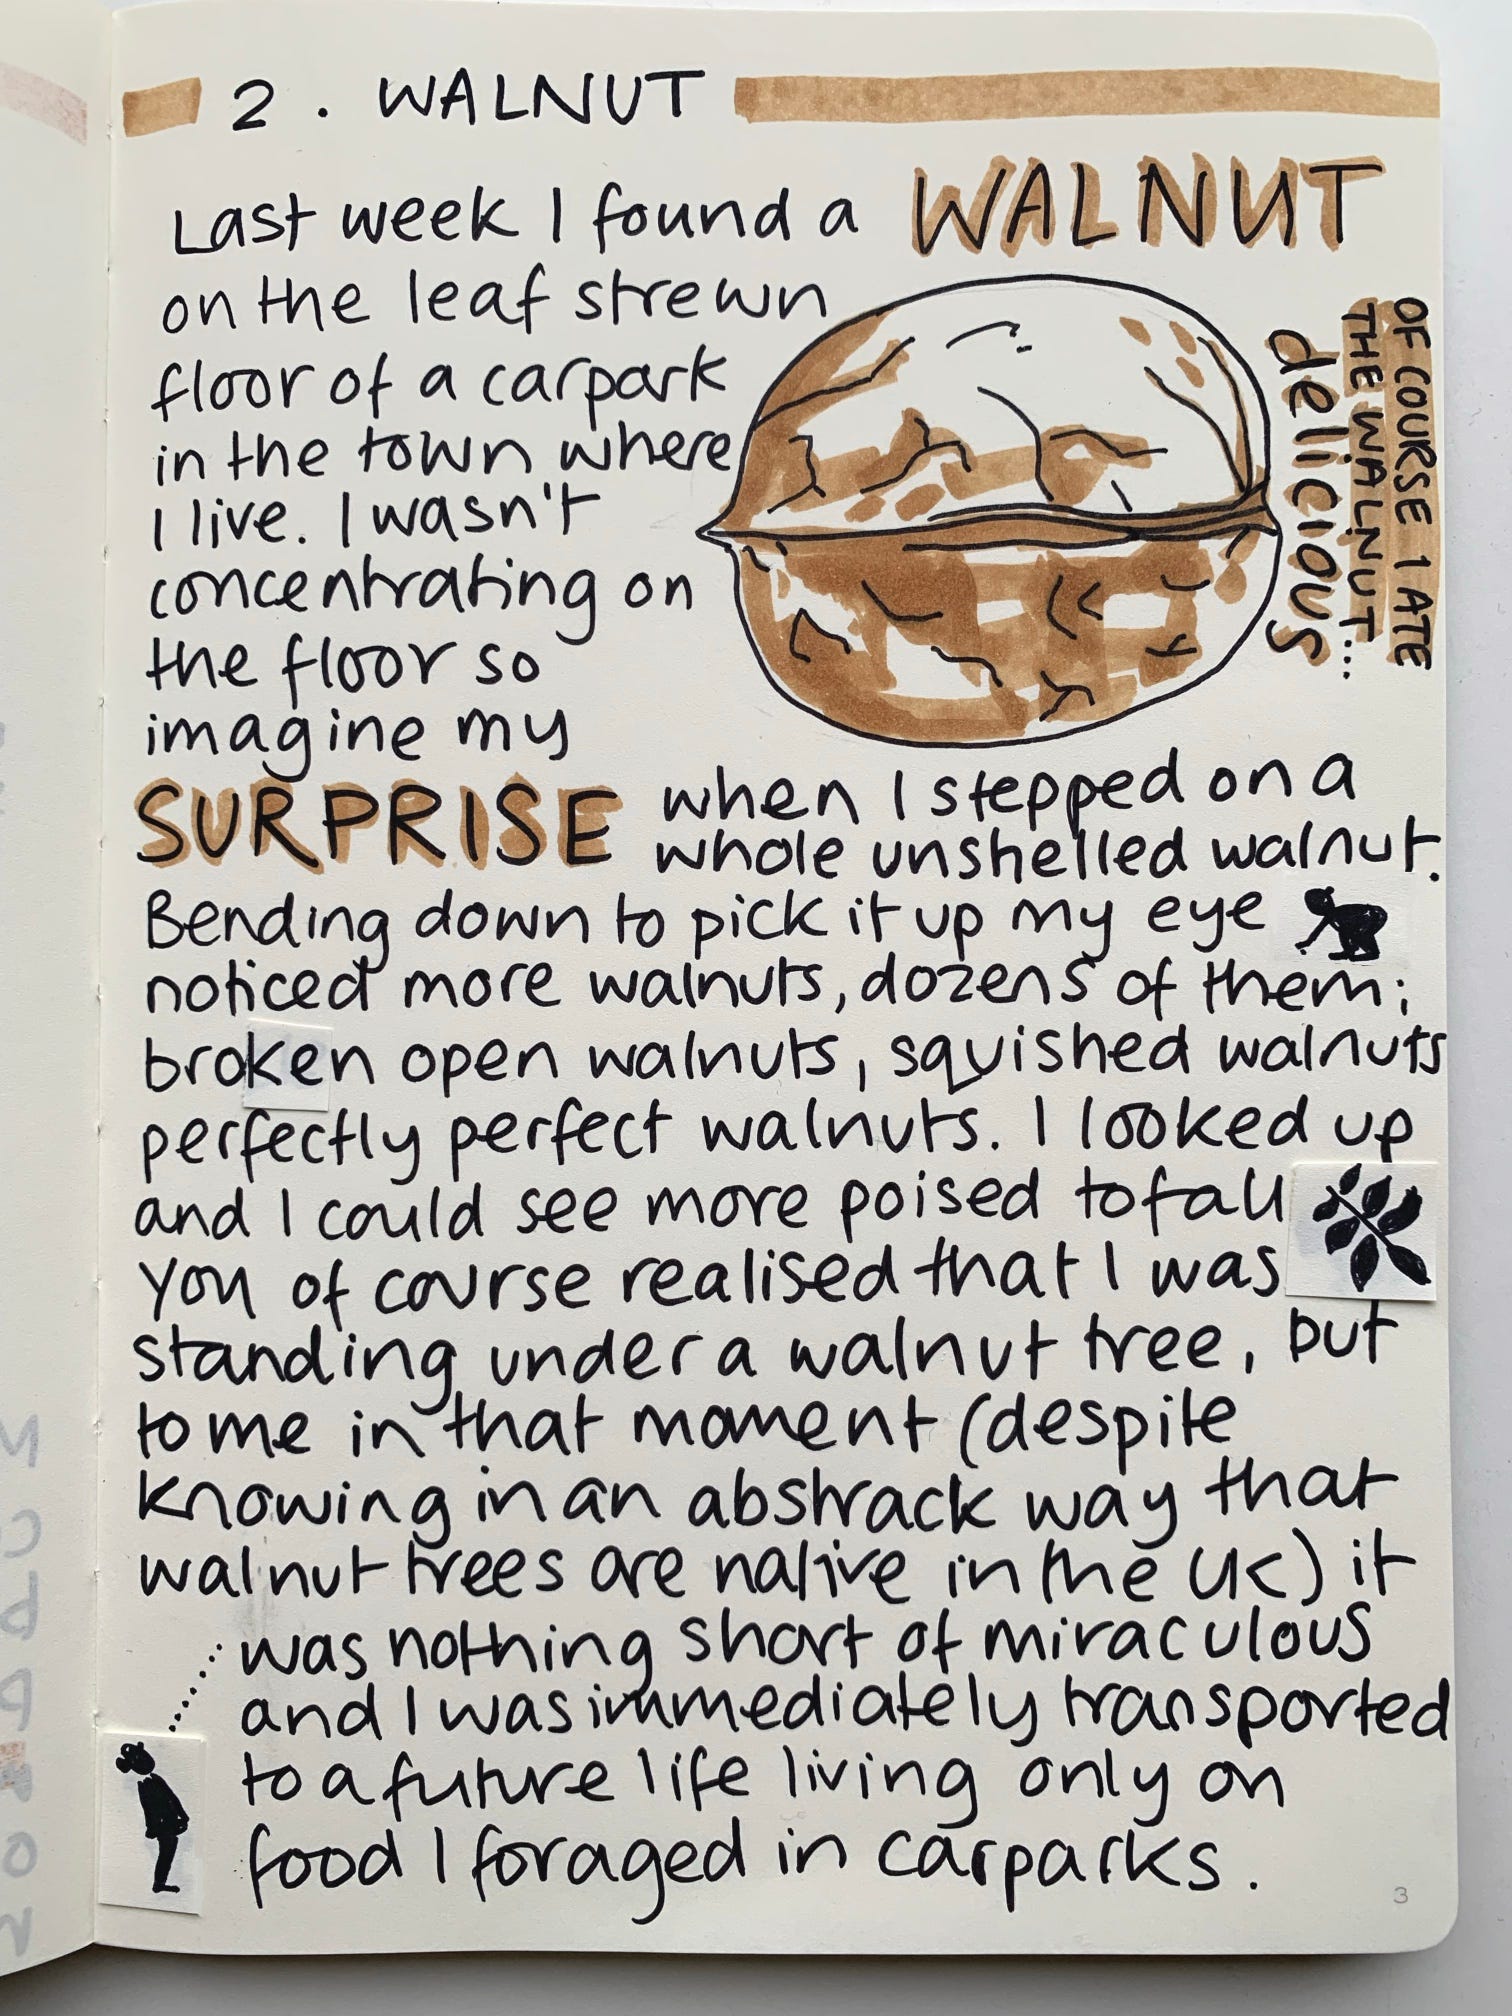 2. WALNUT
Last week I found a WALNUT
on the leaf strewn
floor of a carpark
in the town where
I live. I wasn't
concentrating on
the floor so
imagine my
SURPRISE when I stepped on a
whole unshelled walnut.
Bending down to pick it up my eye
noticed more walnuts, dozens of them;
broken open walnuts, squished walnuts
perfectly perfect walnuts. I looked up
and I could see more poised to fall
You of course realised that I was
standing under a walnut tree, but
to me in that moment (despite
knowing in an abstrack way that
walnut trees are native in the UK) it
was nothing short of miraculous
and I was immediately transported
to a future life living only on
food I foraged in carparks.
OF COURSE I ATE
THE WALNUT...
delicious
3